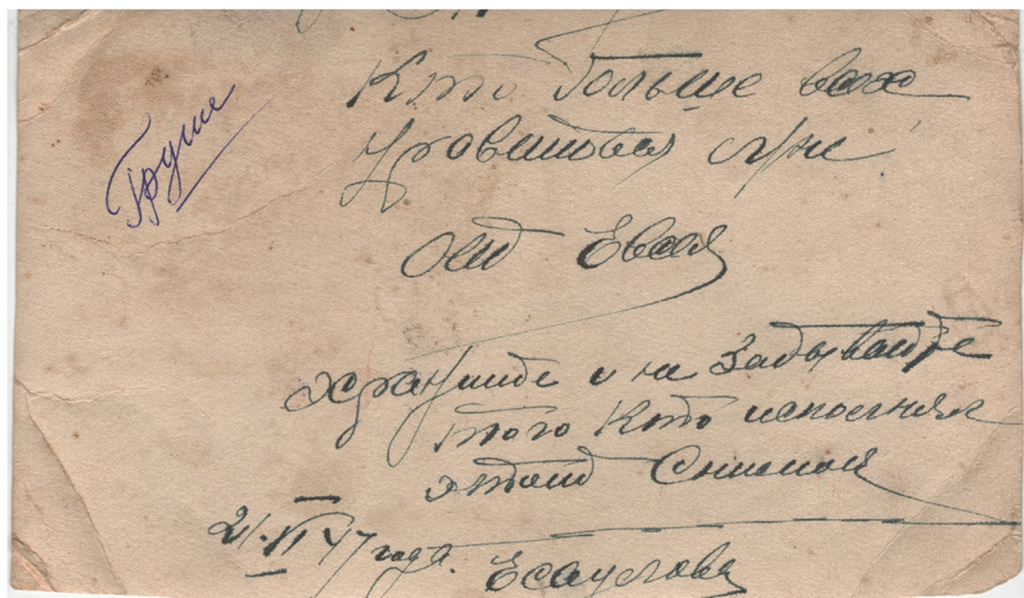 Груше
Кто больше всех
нравится мне
от Евсея
храните и не забывайте
того кто исполнял
этот снимок
21.VI 47 года.
Есаулова